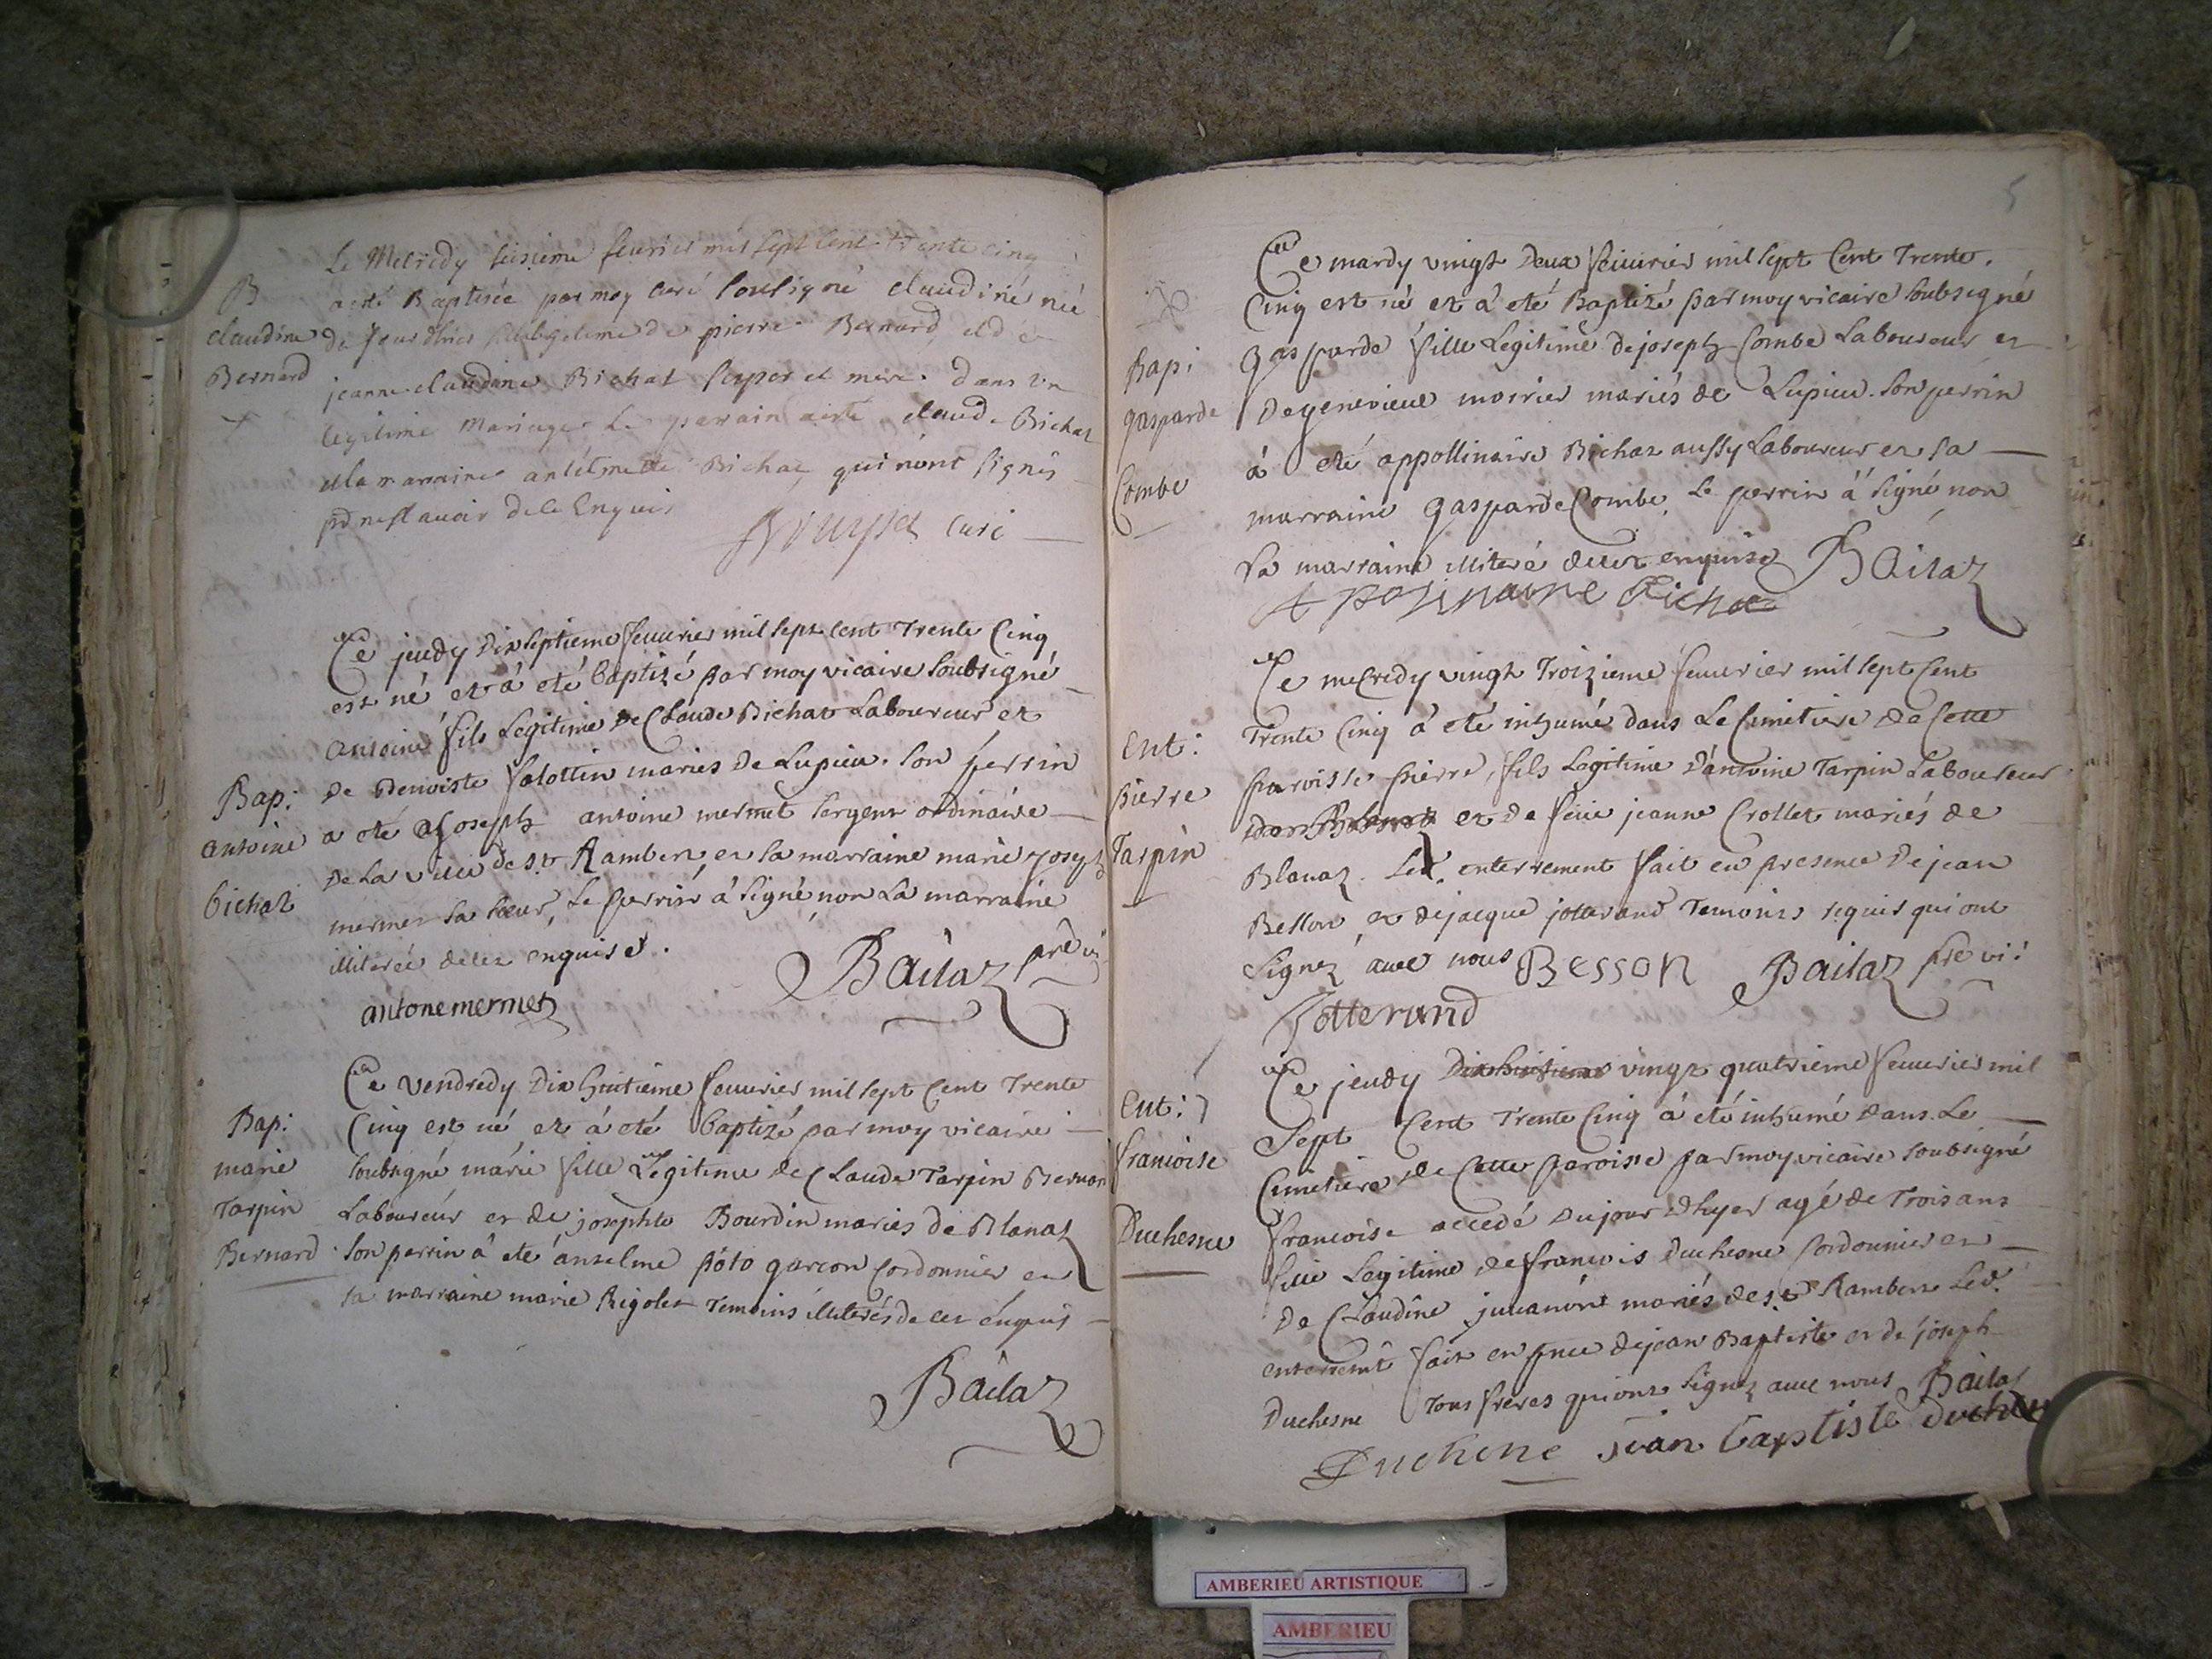 Le Mecredy seisieme feurier mil sept cent trente cinq
a esté Baptisée par moy curé sousigné claudine née
de pierre Bernard et de
jeanne claudine Bichat pere et mere dans un
legitime mariage Le parrain a esté claude Bichat
et la marraine Bichat qui n'ont signés
pr ne sçavoir de ce Enquis
curé
B
claudine
Bernard
Ce jeudy Dix septieme feuurier mil sept cent Trente Cinq
est né et a eté baptizé par moy vicaire soubsigné
antoine fils Legitime de Claude Bichat Laboureur et
de Benoiste falottin mariés de Lupieu. son perrin
a eté joseph antoine mermet sergent ordinaire
de la ville de st Rambert, et sa marraine marie joseph
mermet sa soeur, Le perrin à signé non La marraine
illiterée de ce enquise.
Bailaz prê vi:
antone mermet
Bap:
antoine
bichat
Ce vendredy Dix huitieme feuurier mil sept Cent Trente
Cinq est né et à eté baptizé par moy vicaire
soubsigné marie fille Legitime de Claude Tarpin Bernard
Laboureur et de josephte Bourdin mariés de Blanaz
son perrin à eté anselme poto garcon cordonnier et
sa marraine marie Rigolet Temoins illiterés de ce enquis
Bailaz
Bap:
marie
Tarpin
Bernard
5
Ce mardy vingt Deux feuurier mil sept Cent Trente.
Cinq est né et à eté Baptizé par moy vicaire soubsigné
gasparde fille Legitime de joseph Combe Laboureur et
de genevieue moirier mariés de Lupieu. son perrin
à eté appollinaire Bichat aussy Laboureur et sa
marraine gasparde Combe. Le perrin à signé non
La marraine illiteré de ce enquise Bailaz
Apolinaire Bichat
Bap:
gasparde
Combe
Ce mecredy vingt Troizieme feuurier mil sept Cent
Trente Cinq à eté inhumé dans Le Cimetiere de Cette
paroisse pierre, fils Legitime d'antoine Tarpin Laboureur
et de feüe jeanne Crollet mariés de
Blanaz. Led. enterrement fait en presence de jean
Besson et de jacque jotterand Temoins requis qui ont
signez auec nous Besson Bailaz prê vi:
Jotterand
Ent:
pierre
Tarpin
Ce jeudy Dix huitieme vingt quatrieme feuurier mil
sept Cent Trente Cinq à eté inhumé dans Le
Cimetiere de Cette paroisse par moy vicaire soubsigné
francoise decedé du jour d'hyer agé de Trois ans
fille Legitime de francois Duchesne Cordonnier et
de Claudine juuanon mariés de st Rambert Led.
enterremt fait en pnce de jean Baptiste et de joseph
Duchesne Tous freres qui ont signez auec nous Bailaz
Duchene jean baptiste duchene
Ent:
francoise
Duchesne
AMBERIEU ARTISTIQUE
AMBERIEU